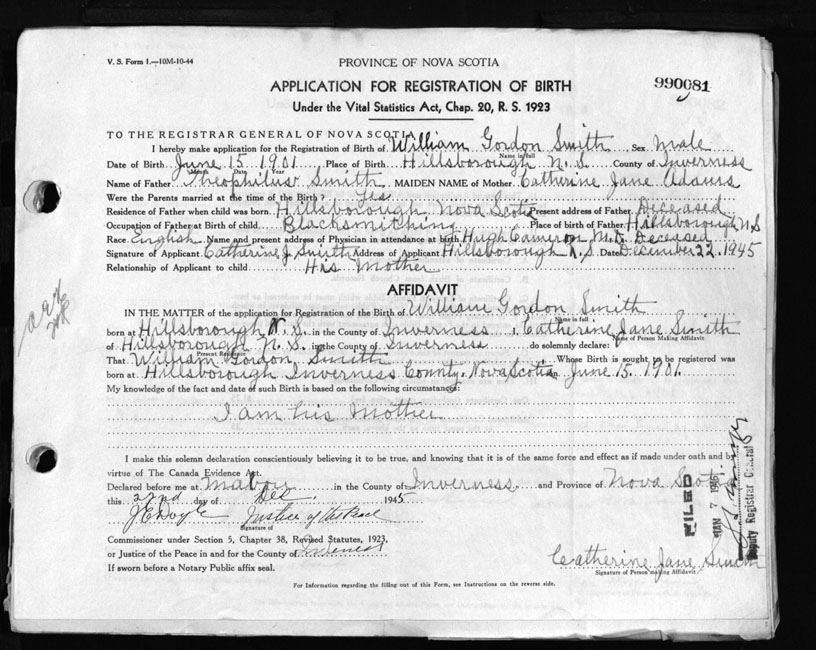 V. S. Form 1.—10M-10-44
PROVINCE OF NOVA SCOTIA
APPLICATION FOR REGISTRATION OF BIRTH
990081
Under the Vital Statistics Act, Chap. 20, R. S. 1923
TO THE REGISTRAR GENERAL OF NOVA SCOTIA
I hereby make application for the Registration of Birth of William Gordon Smith Sex Male
Name in full
Date of Birth June 15 1901 Place of Birth Hillsborough N. S County of Inverness
Month Date Year
Name of Father Theophilus Smith MAIDEN NAME of Mother Catherine Jane Adams
Were the Parents married at the time of the Birth? Yes
Residence of Father when child was born Hillsborough Nova Scotia Present address of Father Deceased
Occupation of Father at Birth of child Blacksmithing Place of birth of Father Hillsborough N S
Race English Name and present address of Physician in attendance at birth Hugh Cameron M. D. Deceased
Signature of Applicant Catherine J. Smith Address of Applicant Hillsborough N. S. Date December 22, 1945
Relationship of Applicant to child His Mother
AFFIDAVIT
IN THE MATTER of the application for Registration of the Birth of William Gordon Smith
Name in full
born at Hillsborough N. S. in the County of Inverness I, Catherine Jane Smith
Name of Person Making Affidavit
of Hillsborough N. S. in the County of Inverness do solemnly declare:
Present Residence
That William Gordon Smith Whose Birth is sought to be registered was
born at Hillsborough Inverness County, Nova Scotia on June 15. 1901.
My knowledge of the fact and date of such Birth is based on the following circumstances:
I am his Mother
I make this solemn declaration conscientiously believing it to be true, and knowing that it is of the same force and effect as if made under oath and by
virtue of The Canada Evidence Act.
Declared before me at Mabou in the County of Inverness and Province of Nova Scotia
this 22nd day of Dec. 1945
J E Doyle Justice of the Peace
Signature of
Commissioner under Section 5, Chapter 38, Revised Statutes, 1923,
or Justice of the Peace in and for the County of Inverness
If sworn before a Notary Public affix seal.
Catherine Jane Smith
Signature of Person making Affidavit.
For Information regarding the filling out of this Form, see Instructions on the reverse side.
FILED
JAN 7
Deputy Registrar General